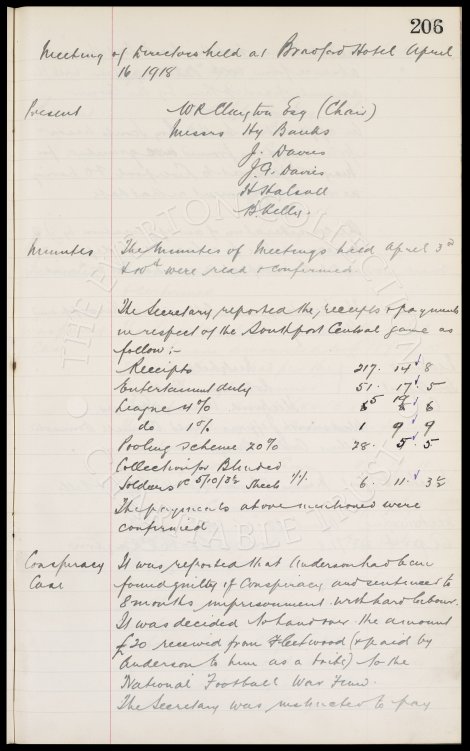 206
Meeting of Directors held at Bradford Hotel April
16 1918
Present W R Clayton Esq (Chair)
Messrs Hy Banks
J. Davies
J. F. Davies
H Halsall
B Kelly.
Minutes The Minutes of Meetings held April 3rd
& 10th were read & confirmed.
The Secretary reported the, receipts & payments
in respect of the Southport Central game as
follow:-
Receipts 217. 14 8
Entertainment duty 51. 17. 5
League 4%
do 1% 1 9 9
Pooling Scheme 20% 28. 5. 5
Collection for Blinded
Soldiers Sheets 6. 11. 3½
The payments above mentioned were
confirmed
Conspiracy It was reported that Anderson had been
Case found guilty of Conspiracy and sentenced to
8 months imprisonment with hard labour.
It was decided to hand over the amount
£20 received from Fleetwood (& paid by
Anderson to him as a bribe) to the
National Football War Fund.
The Secretary was instructed to pay
THE EVERTON COLLECTION
CHARITABLE TRUST